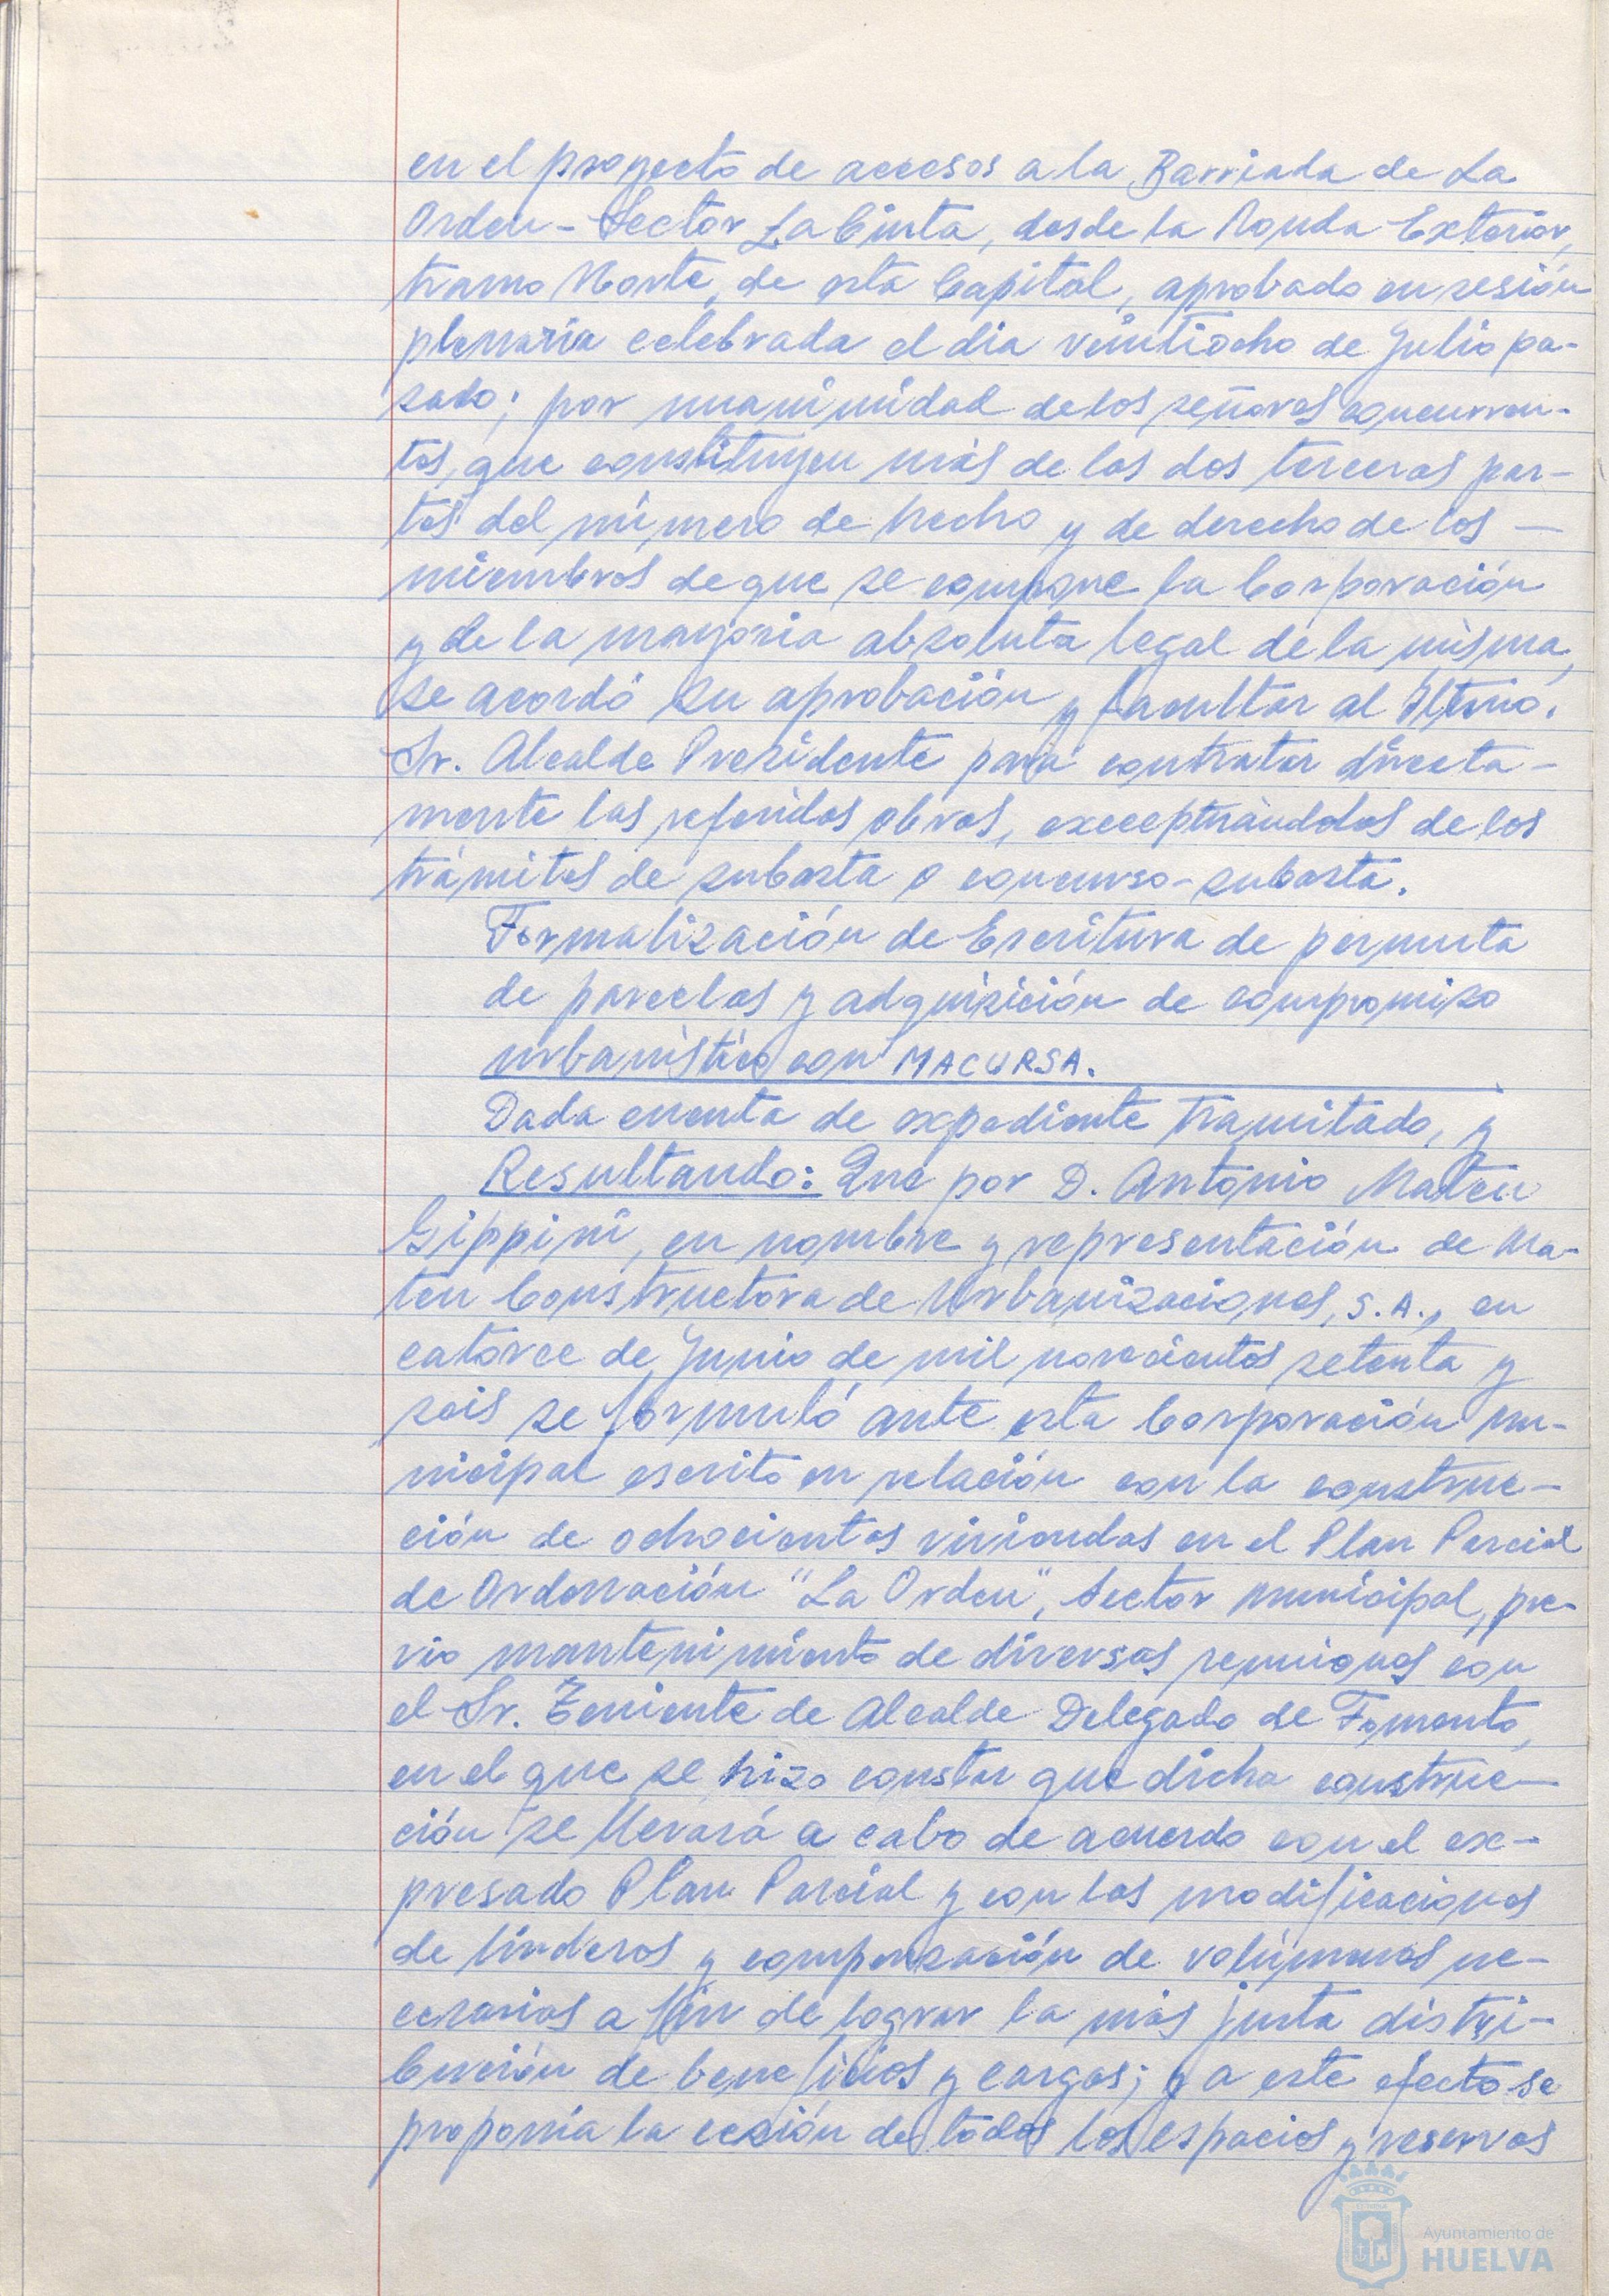 en el proyecto de accesos a la Barriada de La
Orden - Sector La Cinta, desde la Ronda Exterior,
tramo Norte, de esta Capital, aprobado en sesión
plenaria celebrada el dia veintiocho de Julio pa-
sado; por unanimidad de los señores concurren-
tes, que constituyen más de las dos terceras par-
tes del número de hecho y de derecho de los —
miembros de que se compone la Corporación
y de la mayoria absoluta legal de la misma,
se acordó su aprobación y facultar al Iltmo.
Sr. Alcalde Presidente para contratar directa-
mente las referidas obras, exceptuándolas de los
trámites de subasta o concurso-subasta.
Formalización de Escritura de permuta
de parcelas y adquisición de compromiso
urbanístico con MACURSA.
Dada cuenta de expediente tramitado, y
Resultando: Que por D. Antonio Mateu
Gippini, en nombre y representación de Ma-
teu Constructora de Urbanizaciones, S.A., en
catorce de Junio de mil novecientos setenta y
seis se formuló ante esta Corporación Mu-
nicipal escrito en relación con la construc-
ción de ochocientas viviendas en el Plan Parcial
de Ordenación "La Orden", Sector Municipal, pre-
vio mantenimiento de diversas reuniones con
el Sr. Teniente de Alcalde Delegado de Fomento,
en el que se hizo constar que dicha construc-
ción se llevará a cabo de acuerdo con el ex-
presado Plan Parcial y con las modificaciones
de linderos y compensación de volúmenes ne-
cesarias a fin de lograr la más justa distri-
bución de beneficios y cargas; y a este efecto se
proponía la cesión de todos los espacios y reservas
Ayuntamiento de
HUELVA